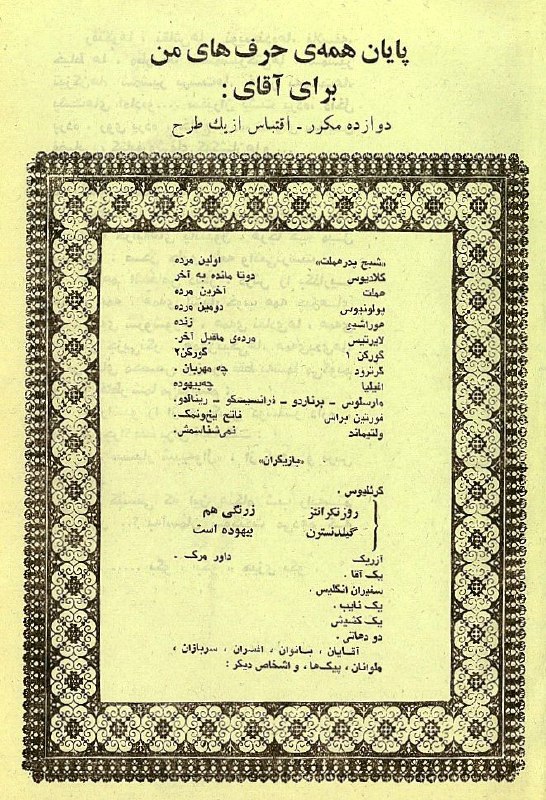 پایان همه‌ی حرف‌های من
برای آقای :
دوازده مکرر - اقتباس از یك طرح
«شبح پدر هملت» اولین مرده
کلادیوس دوتا مانده به آخر
هملت آخرین مرده
پولونیوس دومین مرده
هوراشیو زنده
لایرتیس مرده‌ی ماقبل آخر.
گورکن ۱ گورکن۲
گرترود چه مهربان .
افیلیا چه‌بیهوده
مارسلوس - برناردو - فرانسیسکو - رینالدو.
فورتین براس فاتح بیخ‌ونمک.
ولتیماند نمی‌شناسمش.
«بازیگران»
کرنلیوس .
روزنکرانتز زرنگی هم
گیلدنسترن بیهوده است
آزریك داور مرگ .
یك آقا .
سفیران انگلیس .
یك نایب .
یك کشیش
دو دهاتی .
آقایان ، بانوان ، افسران ، سربازان ،
ملوانان ، پیک‌ها ، و اشخاص دیگر :